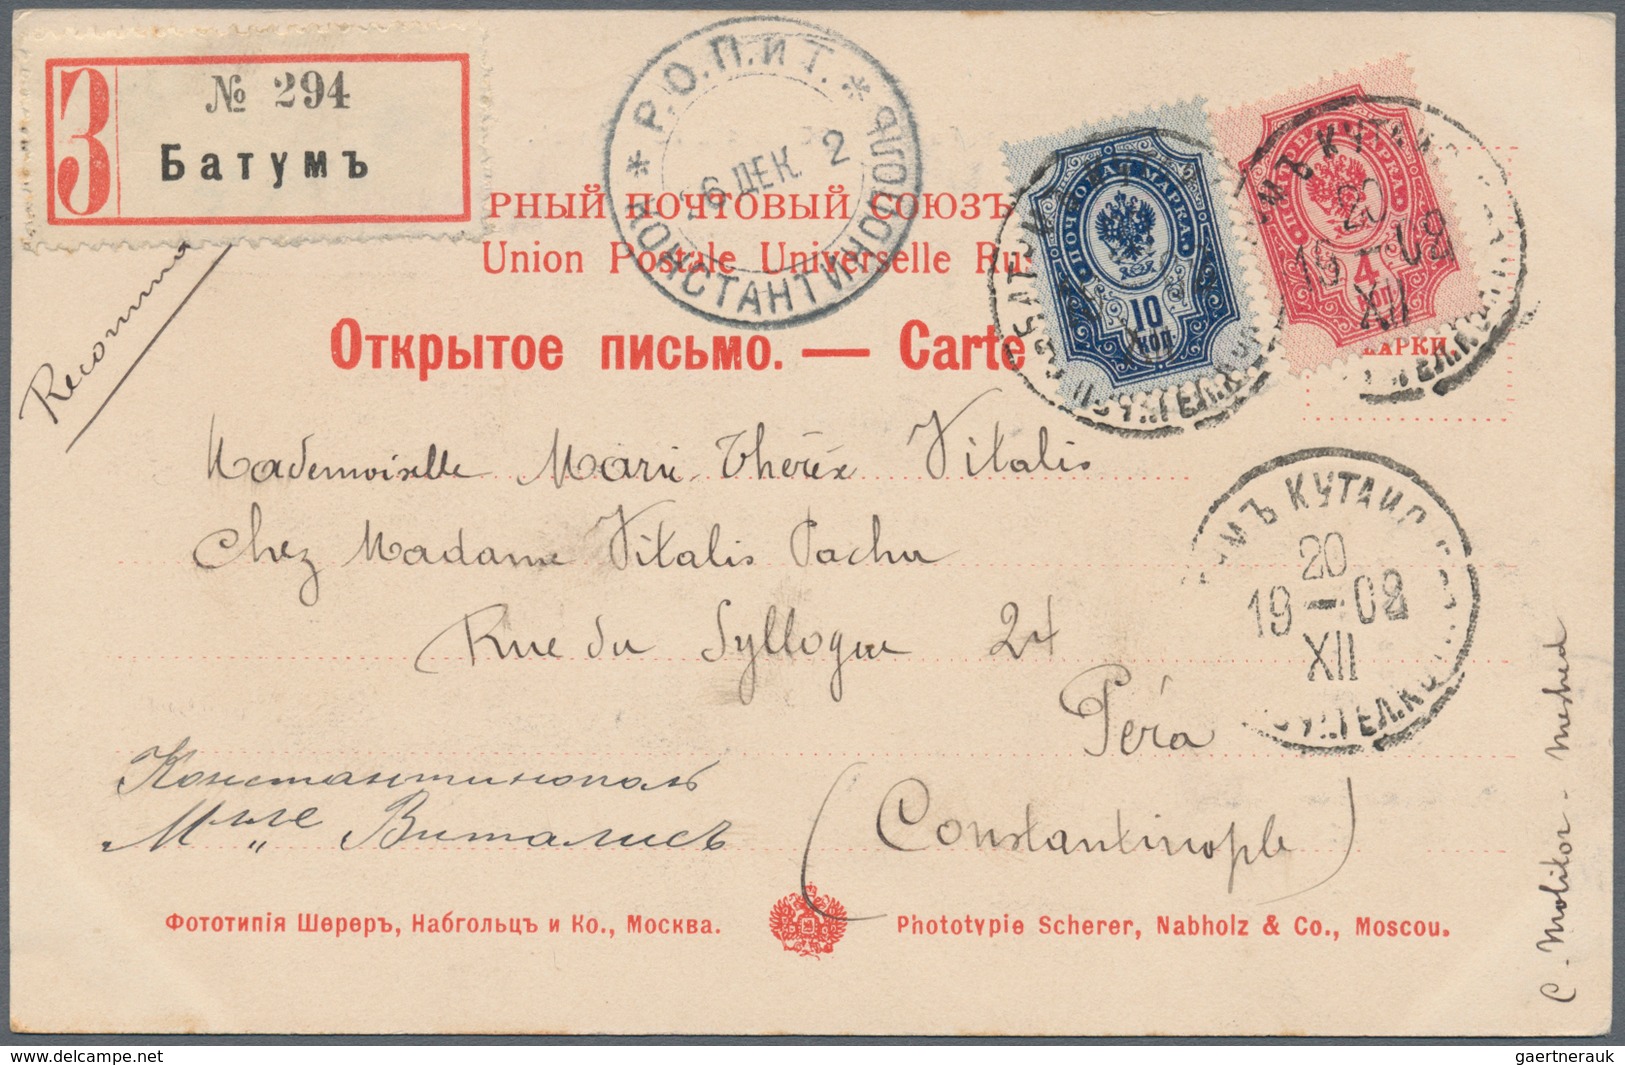 З
№ 294
Батумъ
Р.О.П.и Т.
КОНСТАНТИНОПОЛЬ
26 ДЕК. 2
РНЫЙ ПОЧТОВЫЙ СОЮЗЪ
Union Postale Universelle Ru
Открытое письмо. — Carte
ПОЧТОВАЯ МАРКА
10
КОП
4
КОП
20
19 — 02
XII
МАРКИ
Recomma
Mademoiselle Marie-Thérèse Vitalis
Chez Madame Vitalis Pacha
Rue du Syllogue 24
Péra
(Constantinople)
МЪ КУТАИС
20
19 — 02
XII
ТЕЛ.КО
Константинополь
Мlle Виталисъ
C. Molitor - Meshed
Фототипія Шереръ, Набгольцъ и Ко., Москва.
Phototypie Scherer, Nabholz & Co., Moscou.
www.delcampe.net
gaertnerauk